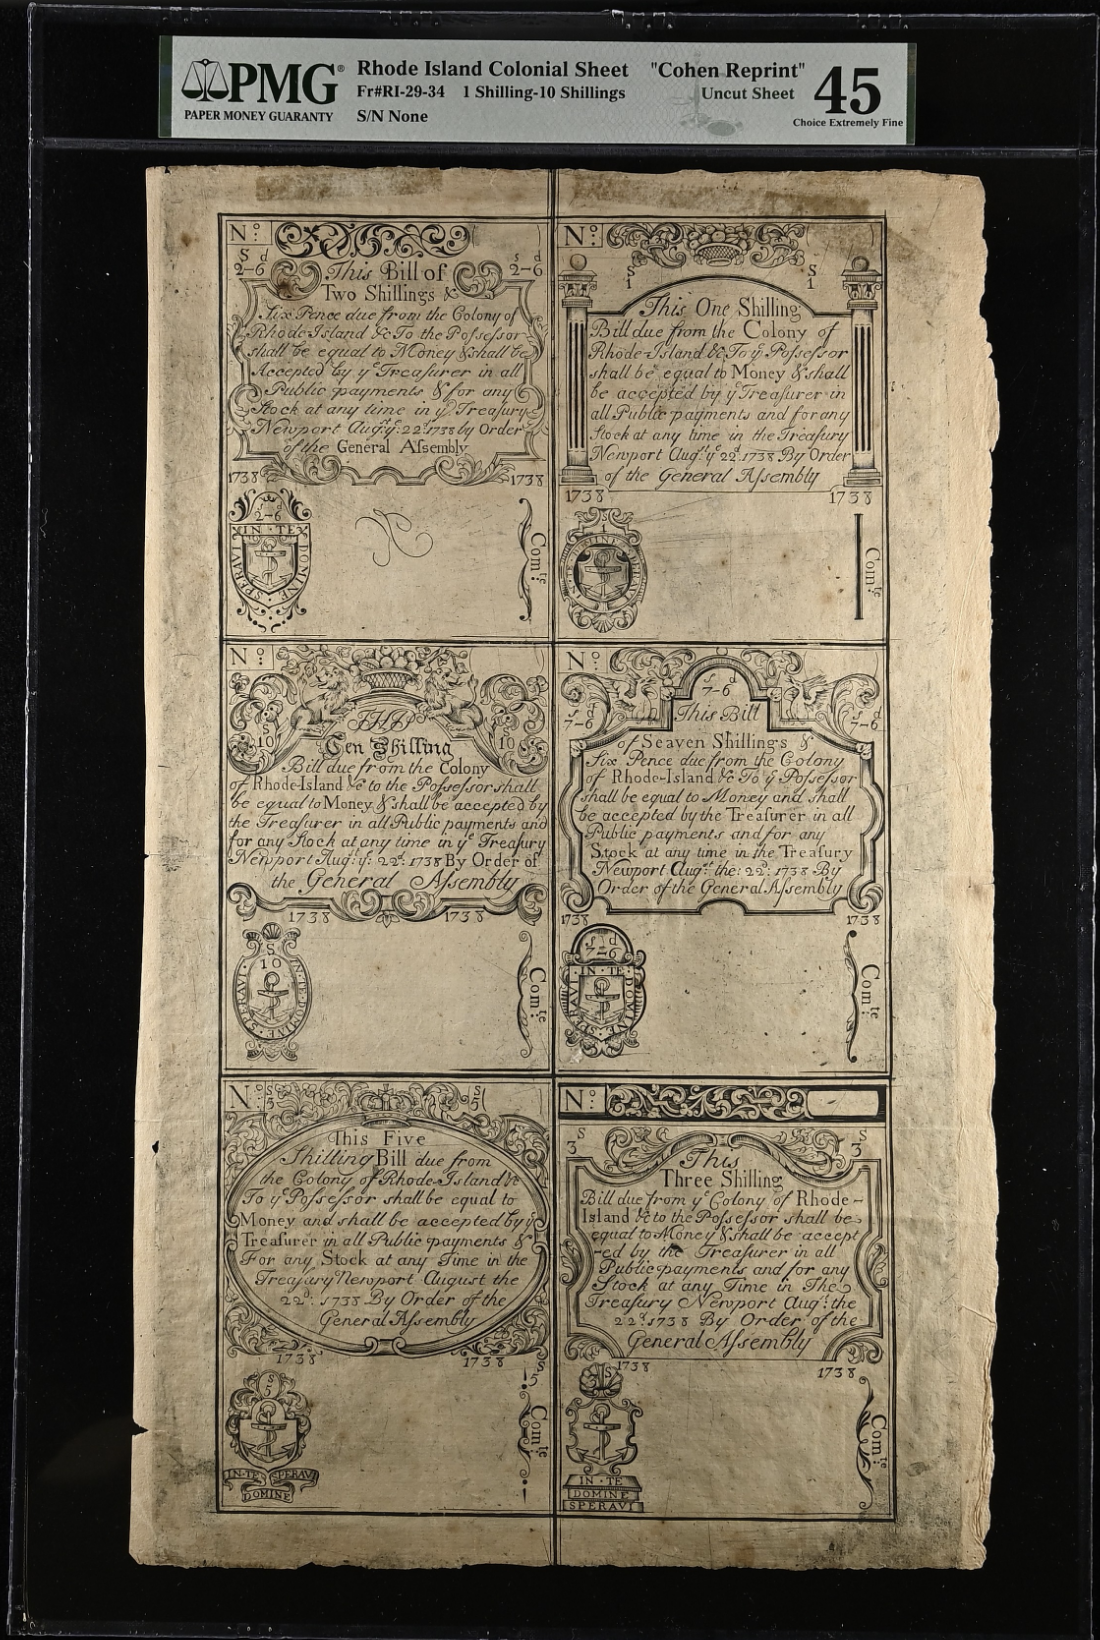 PMG®
PAPER MONEY GUARANTY
Rhode Island Colonial Sheet "Cohen Reprint"
Fr#RI-29-34 1 Shilling-10 Shillings Uncut Sheet
S/N None
45
Choice Extremely Fine
No:
S d
2-6
s d
2-6
This Bill of
Two Shillings &
Six Pence due from the Colony of
Rhode-Island &c To the Possessor
shall be equal to Money & shall be
Accepted by ye Treasurer in all
Public payments & for any
Stock at any time in ye Treasury
Newport Augt. ye: 22d. 1738 by Order
of the General Assembly
1738
1738
s d
2-6
IN·TE
DOMINE·
SPERAVI
Comte:
No:
s
1
s
1
This One Shilling
Bill due from the Colony of
Rhode-Island &c To ye Possessor
shall be equal to Money & shall
be accepted by ye Treasurer in
all Public payments and for any
Stock at any time in the Treasury
Newport Augt. ye 22d. 1738 By Order
of the General Assembly
1738
1738
s
1
Comte:
No:
S
10
S
10
Ten Shilling
Bill due from the Colony
of Rhode-Island &c to the Possessor shall
be equal to Money & shall be accepted by
the Treasurer in all Public payments and
for any Stock at any time in ye Treasury
Newport Augt: ye: 22d: 1738 By Order of
the General Assembly
1738
1738
S
10
IN·TE·DOMINE·SPERAVI·
Comte:
No:
s d
7-6
s
7-6
d
7-6
This Bill
of Seaven Shillings &
Six Pence due from the Colony
of Rhode-Island &c To ye Possessor
shall be equal to Money and shall
be accepted by the Treasurer in all
Public payments and for any
Stock at any time in the Treasury
Newport Augst the: 22d: 1738 By
Order of the General Assembly
1738
1738
s d
7-6
IN·TE·
DOMINE·
SPERAVI
Comte:
No:
S
5
S
5
This Five
Shilling Bill due from
the Colony of Rhode-Island &c
To ye Possessor shall be equal to
Money and shall be accepted by ye
Treasurer in all Public payments &
For any Stock at any Time in the
Treasury Newport August the
22d: 1738 By Order of the
General Assembly
1738
1738
S
5
IN·TE SPERAVI
DOMINE
S
5
Comte:
No:
S
3
S
3
This
Three Shilling
Bill due from ye Colony of Rhode-
Island &c to the Possessor shall be
equal to Money & shall be accept
-ed by the Treasurer in all
Public payments and for any
Stock at any Time in The
Treasury Newport Augt: the
22d: 1738 By Order of the
General Assembly
1738
1738
S
3
IN·TE
DOMINE
SPERAVI
Comte: